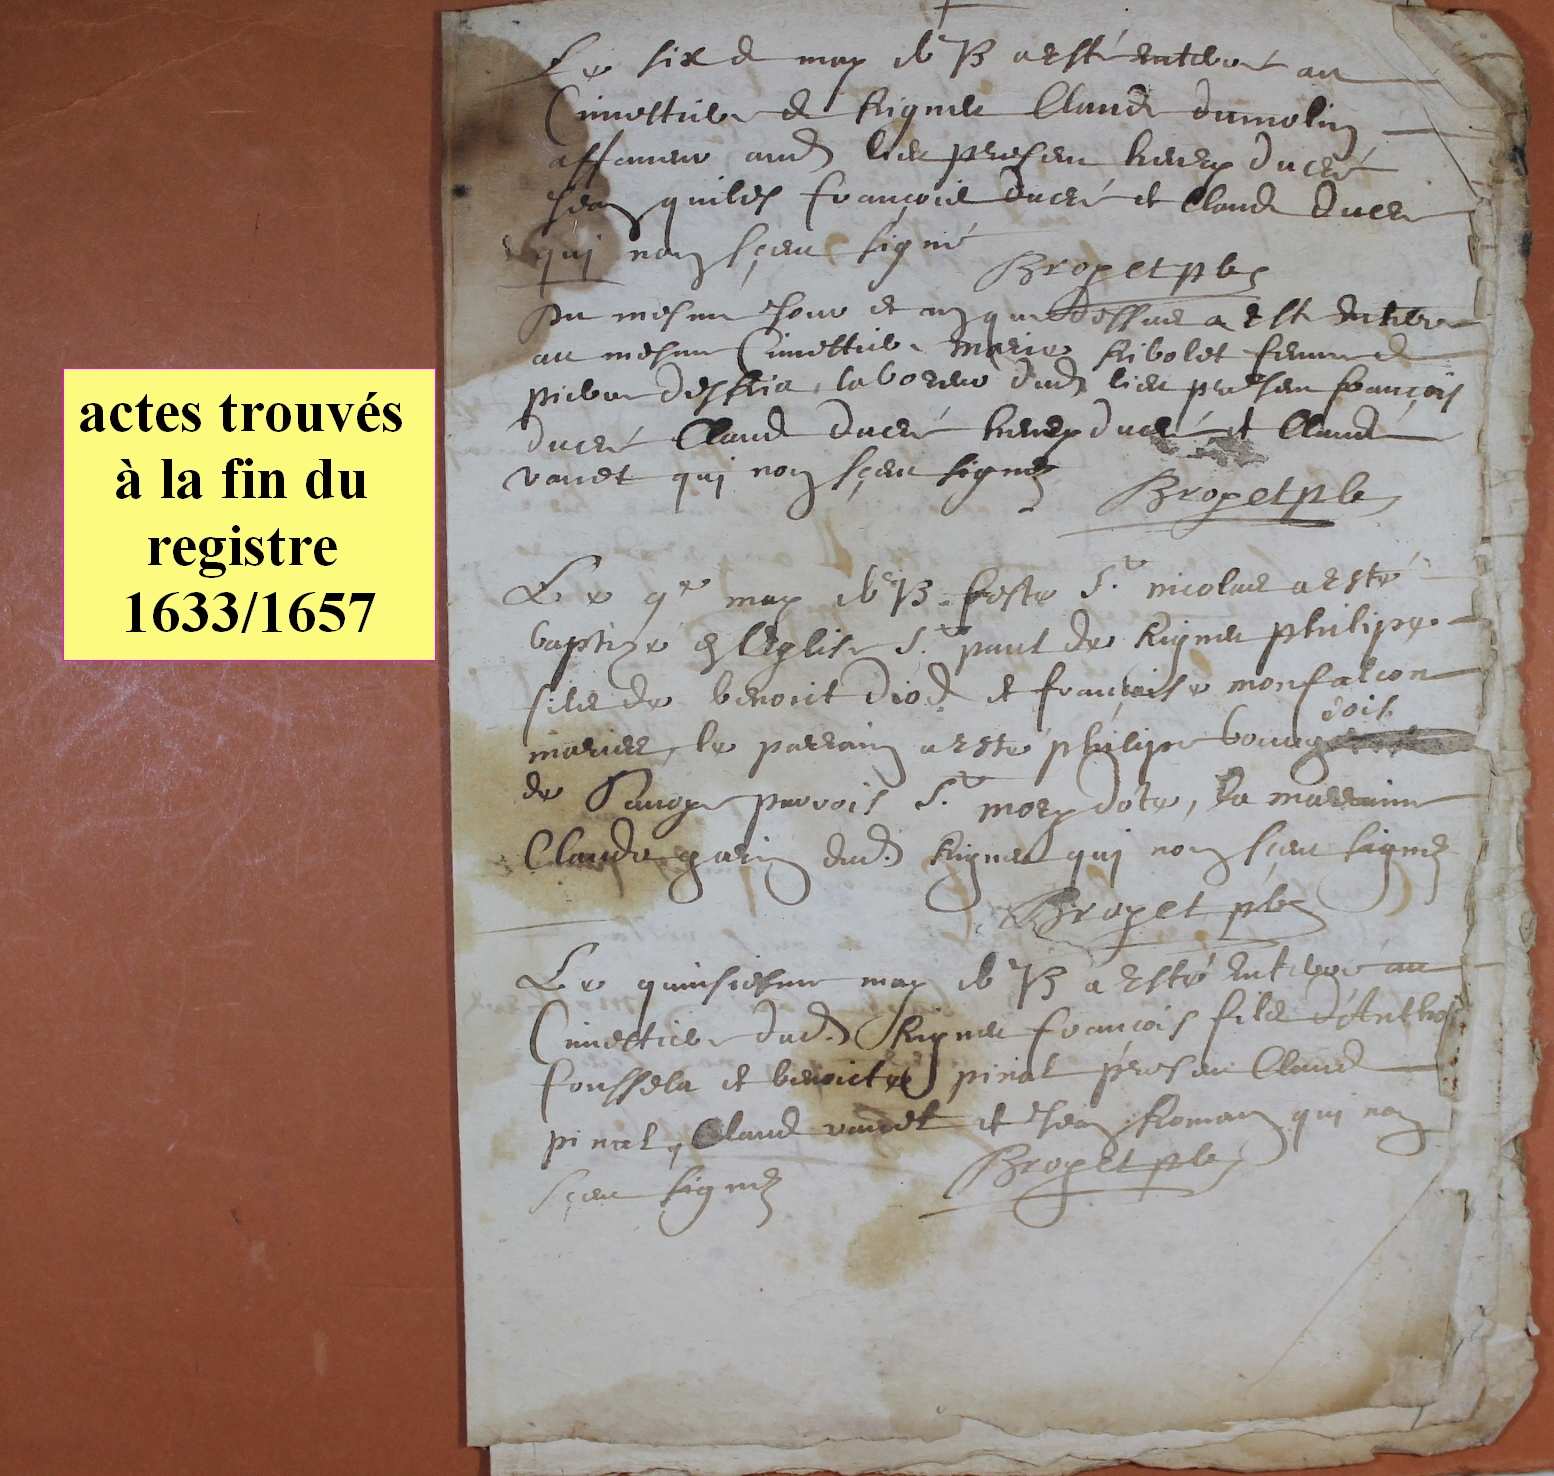 actes trouvés
à la fin du
registre
1633/1657
Le six de may a esté enterré au
Cimettiere de Rignieu Claude dumolin
affaneur aud lieu presen henry ducré
Jean quiles françois ducré et Claude ducré
qui non sçeu signé
Broyet pbr
Du mesme jour et an que dessus a esté enterré
au mesme Cimettiere Marie Ribolet femme de
pierre laboreur dud lieu presen françois
ducré Claude ducré henry ducré et Claude
vauet qui non sçeu signer
Broyet pbr
Le 9e may feste St. nicolas a esté
baptizé en leglise St. paul de Rignieu philippe
fils de benoict et françoise monfalcon
mariez, le parrain a esté philipe bourg
dois
de parrois St. la marraine
Claude garin dud. Rignieu qui non sçeu signer
Broyet pbr
Le quinsiesme may a esté enterré au
Cimettiere dud. Rignieu françois fils d'Antho
foussela et benoicte pinat presen Claude
pinat, Claude vauet et Jean Roman qui non
sçeu signer
Broyet pbr